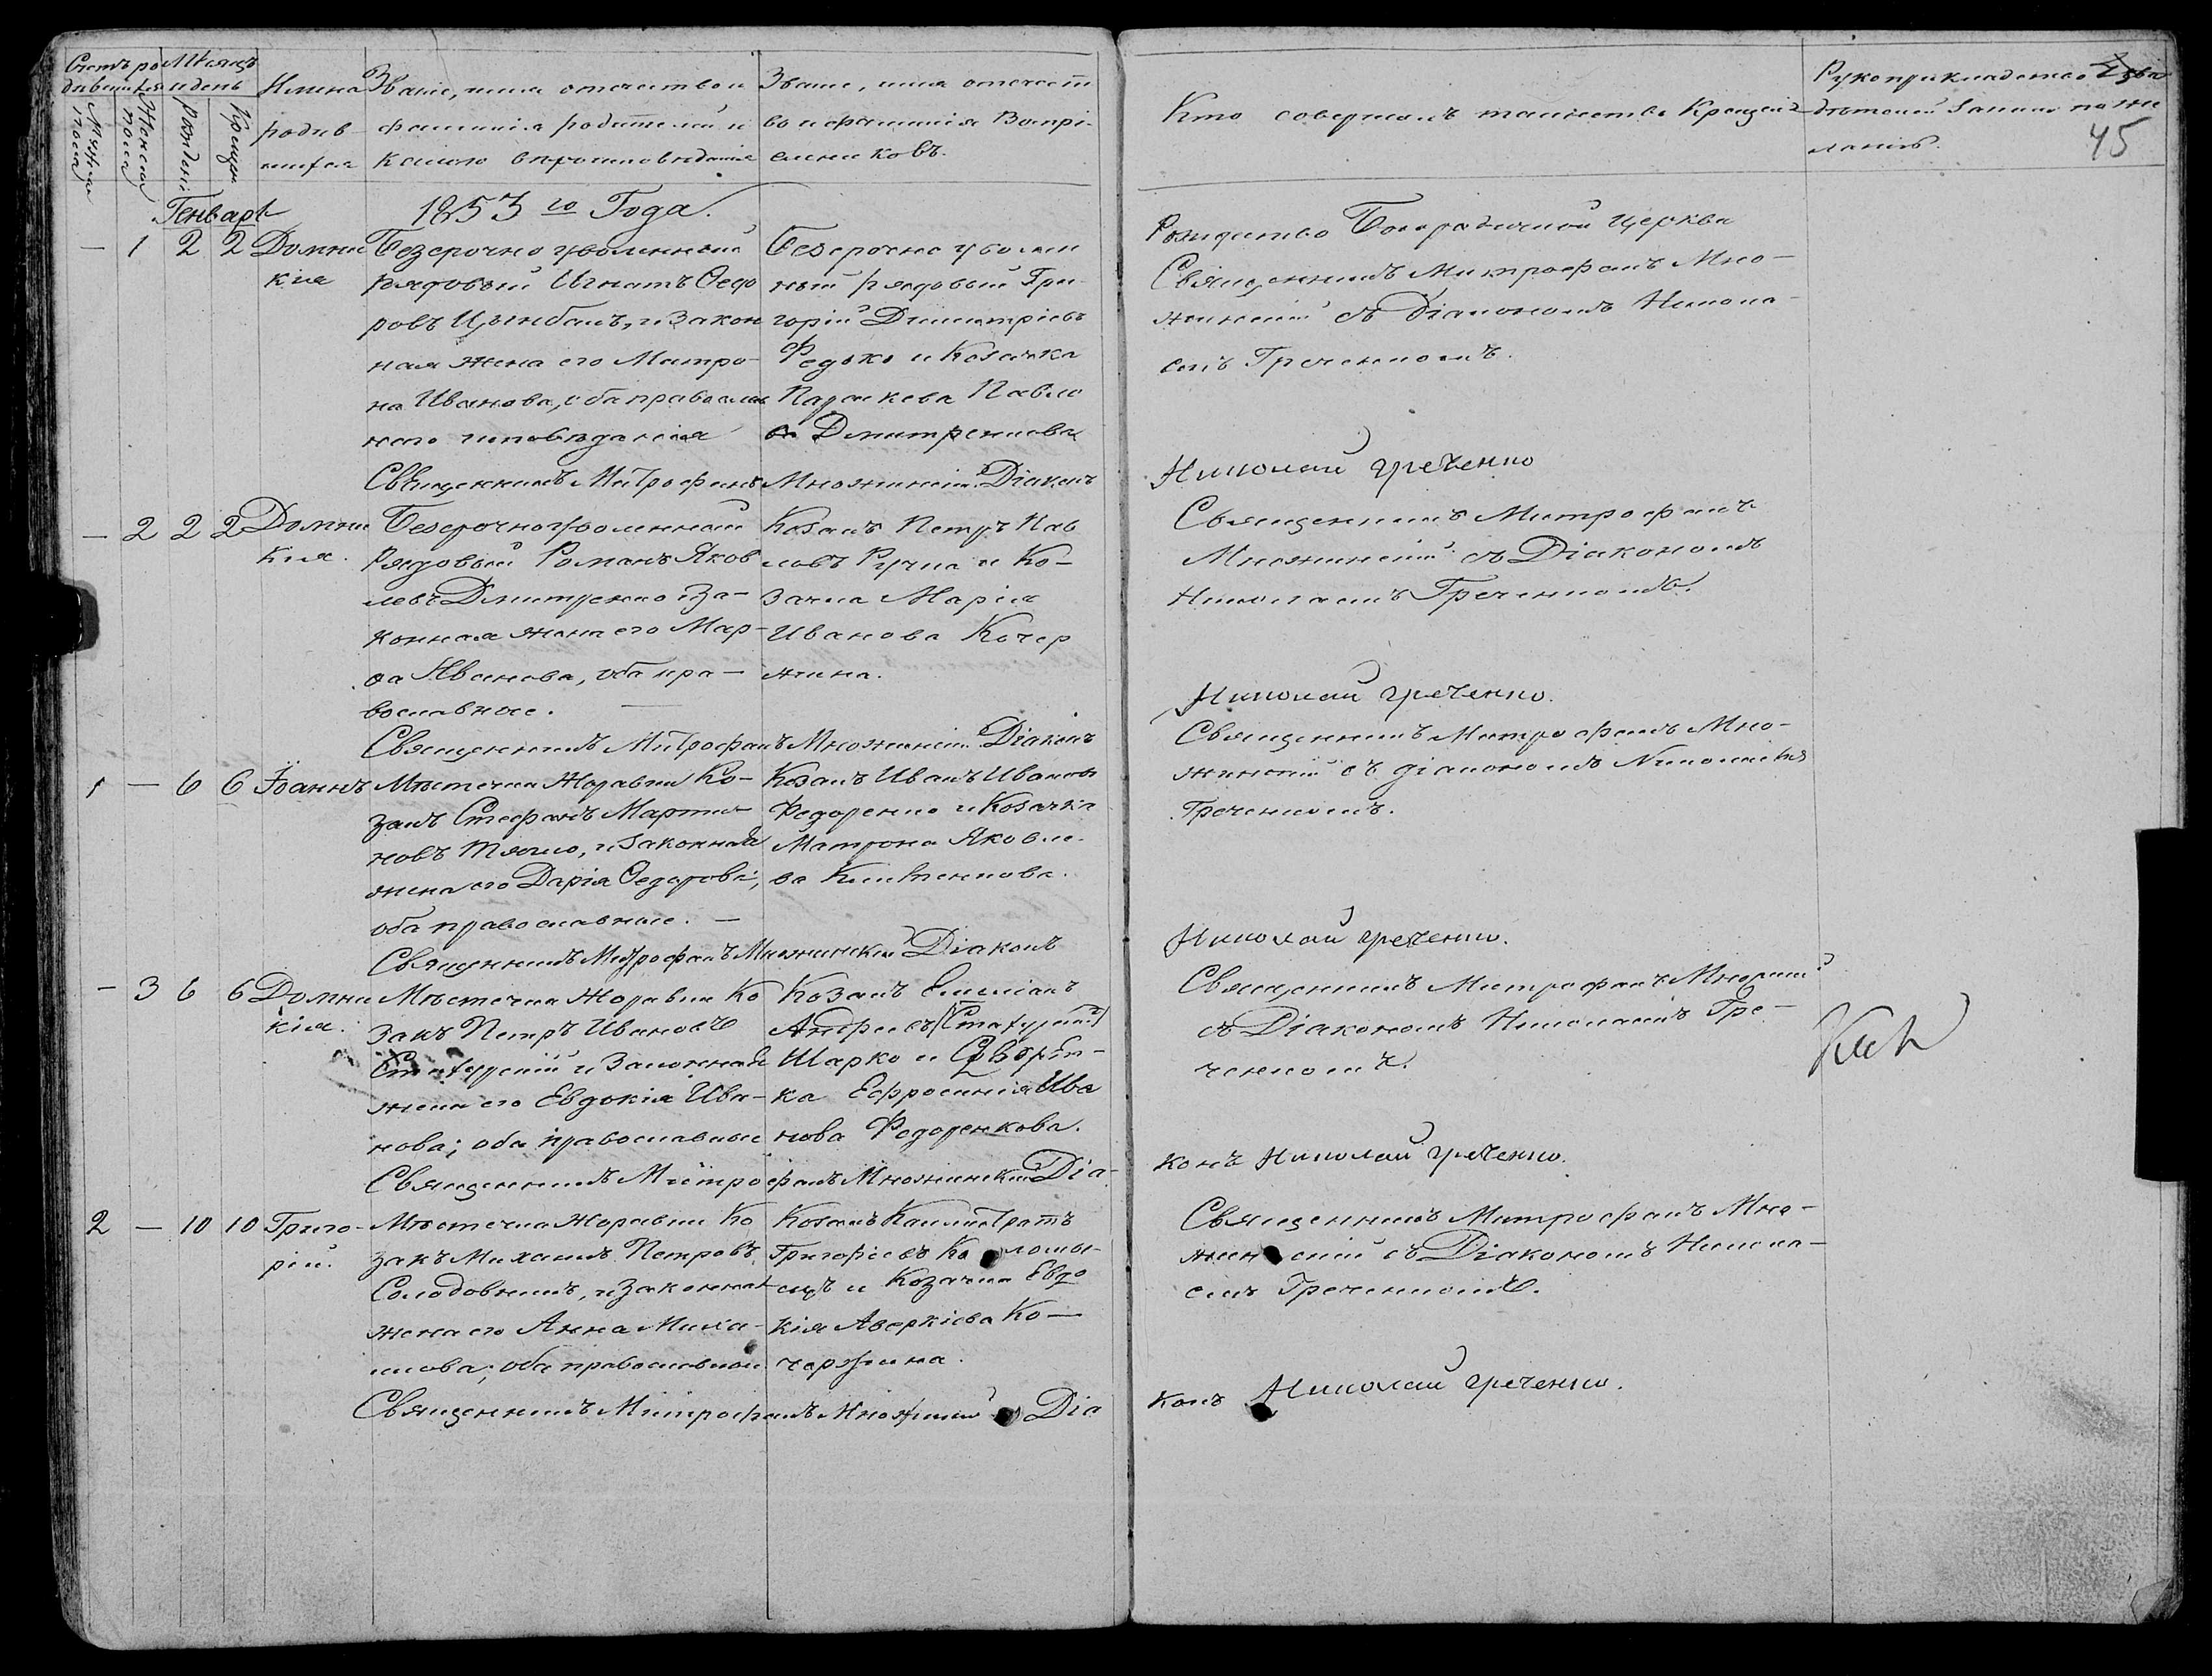 Счетъ ро
дившихся
Мѣсяцъ
и день
Имена
родив-
шихся
Званіе, имя отчество и
фамилія родителей и
какого вѣроисповѣданія
Званіе, имя отчест
во и фамилія Воспрі-
емниковъ.
Мужеска
пола
Женска
пола
Рожденія
Крещен
Генварь
1853 го Года.
— 1 2 2 Домни
кія
Безсрочно уволенный
рядовый Игнатъ Ѳедо
ровъ Цымбалъ, и закон
ная жена его Матро-
на Иванова, оба православ
наго исповѣданія
Безсрочно уволен
ный рядовый Гри-
горій Димитріевъ
Редько и Козачка
Параскева Павло
ва Дмитренкова
Священникъ Митрофанъ Множинскій Діаконъ
— 2 2 2 Домни
кія.
Безсрочноуволенный
Рядовый Романъ Яков
левъ Дмитренко и за-
конная жена его Мар-
ѳа Иванова, оба пра-
вославные.
Козакъ Петръ Пав
ловъ Ручка и Ко-
зачка Марія
Иванова Кочер
жина.
Священникъ Митрофанъ Множинскій Діаконъ
1 — 6 6 Іоаннъ
Мѣстечка Журавки Ко-
закъ Стефанъ Марти-
новъ Тягло, и законная
жена его Дарія Ѳедорова,
оба православные. —
Козакъ Иванъ Ивановъ
Федоренко и Козачка
Матрона Яковле-
ва
Священникъ Митрофанъ Множинскій Діаконъ
— 3 6 6 Домни
кія.
Мѣстечка Журавки Ко
закъ Петръ Ивановъ
и Законная
жена его Евдокія Ива-
нова; оба православные
Козакъ Емиліанъ
Андреевъ
Шарко и Дворян-
ка Ефросинія Ива
нова Федоренкова.
Священникъ Митрофанъ Множинскій Діа-
2 — 10 10 Григо-
рій.
Мѣстечка Журавки Ко
закъ Михаилъ Петровъ
Солодовникъ, и законная
жена его Анна Миха-
илова; оба православные
Козакъ Каллистратъ
Григоріевъ Коломы-
ецъ и Козачка Евдо
кія Аверкіева Ко-
чержина.
Священникъ Митрофанъ Множинскій Діа
Кто совершалъ таинство Крещенія
Рукоприкладство свѣ
дѣтелей записи по же
ланію.
45
Рождество Богородичной Церкви
Священникъ Митрофанъ Мно-
жинскій съ Діакономъ Никола-
емъ Греченкомъ.
Николай Греченко
Священникъ Митрофанъ
Множинскій съ Діакономъ
Николаемъ Греченкомъ.
Николай Греченко.
Священникъ Митрофанъ Мно-
жинскій съ діакономъ Николаемъ
Греченкомъ.
Николай Греченко.
Священникъ Митрофанъ
съ Діакономъ Николаемъ Гре-
ченкомъ.
конъ Николай Греченко.
Священникъ Митрофанъ Мно-
жинскій съ Діакономъ Никола-
емъ Греченкомъ.
конъ Николай Греченко.